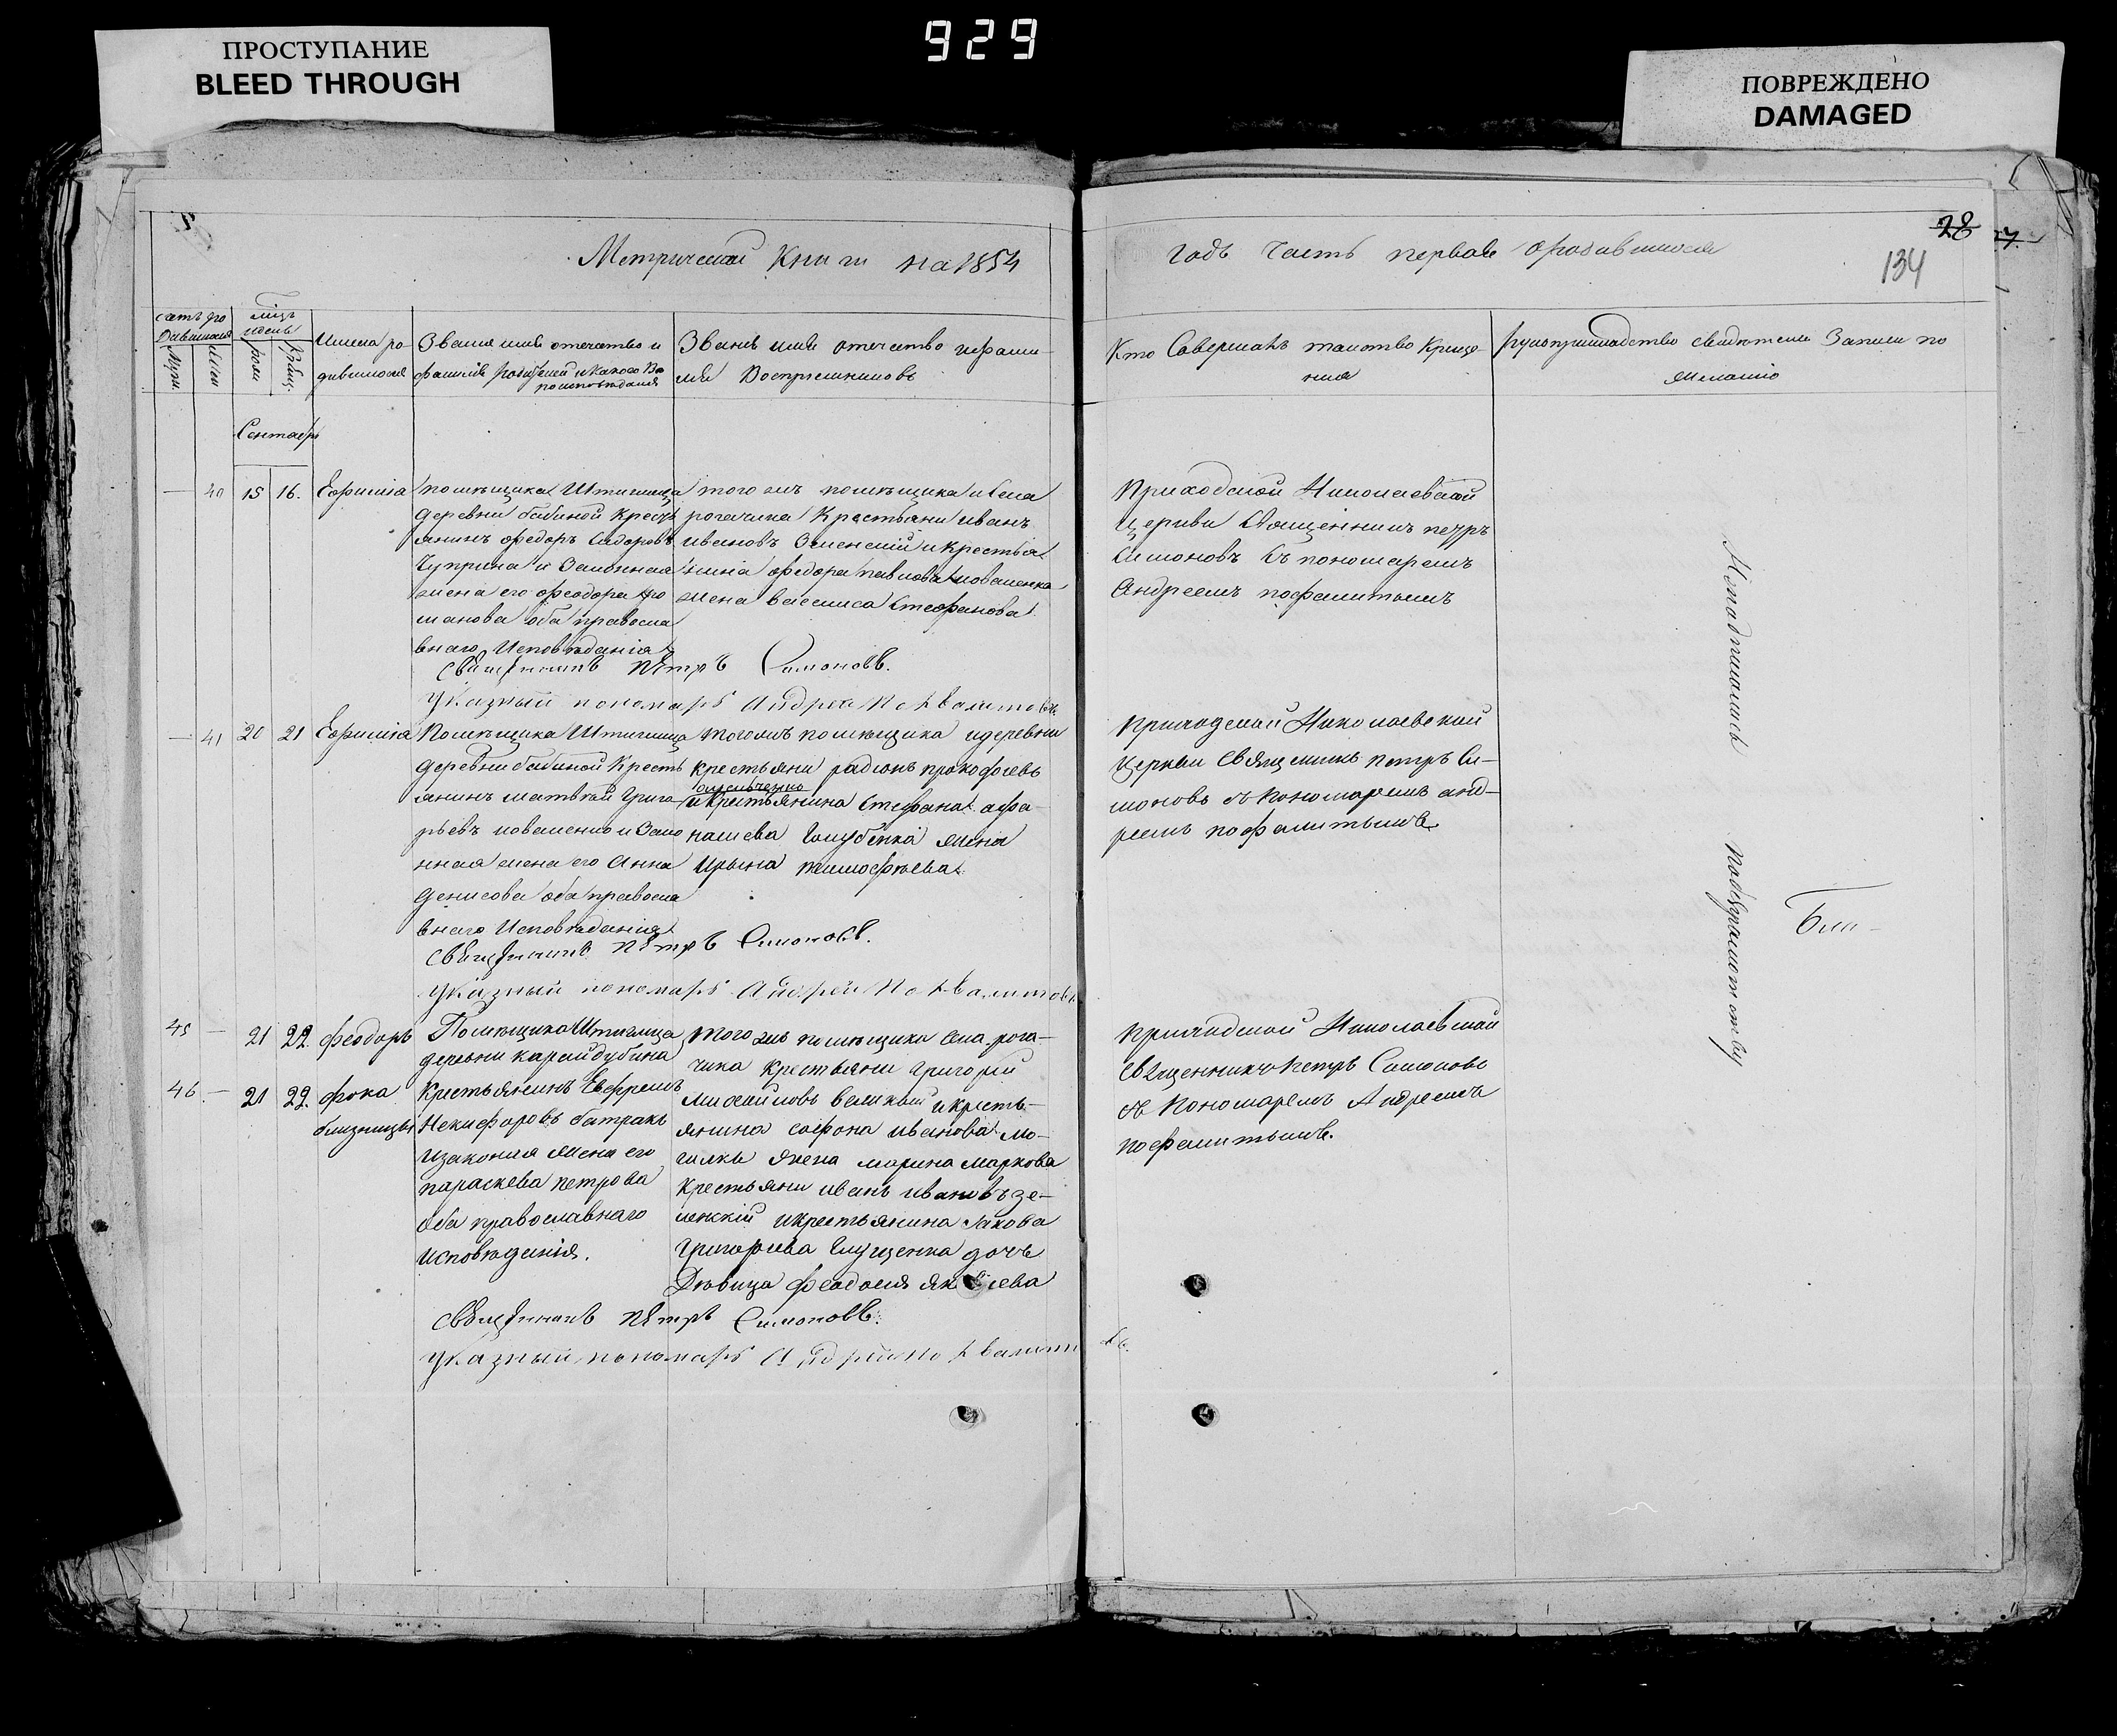 ПРОСТУПАНИЕ
BLEED THROUGH
929
ПОВРЕЖДЕНО
DAMAGED
Метрической Книги на 1854
годъ Часть первая о родившихся
28
134
Мѣсяцъ
Имена ро-
дившихся
Званiя имя отечество и
фамилiя родителей и какого Вѣ
роисповѣданiя
Званiе имя отечество и фами-
лiя Воспрiемниковъ
Кто Совершалъ таинство Креще-
нiя
рукоприкладство свидѣтелей Записи по
желанiю
Сентябрь
— 40 15 16. Ефимiя
помѣщика Штиглица
деревни бабиной Крестъ
янинъ федоръ Сидоровъ
Чуприна и Законная
жена его феодора Ро
манова оба правосла
внаго Исповѣданiя
того жъ помѣщика и села
рогачика Крестьяни иванъ
ивановъ Зеленскiй и крестья
нина федора павлова коваленка
жена васелиса Стефанова
Приходской Николаевской
церкви Священникъ петръ
Симоновъ Съ пономаремъ
Андреемъ похвалитымъ
Священникъ Петръ Симоновъ.
Указный пономарь Андрей Похвалитовъ
— 41 20 21 Ефимiя
Помѣщика Штиглица
деревни бабиной Кресть
янинъ матвѣй Григо
рьевъ коваленко и Зако
нная жена его Анна
денисова оба правосла
внаго Исповѣданiя
тогожъ помѣщика идеревни
крестьяни радионъ прокофьевъ
и крестьянина Стефана афа-
насьева Голубенка жена
Ирына тимофѣева
приходской Николаевской
церкви Священникъ петръ Си-
моновъ съ пономаремъ анд-
реемъ похвалитымъ
Священникъ Петръ Симоновъ.
Указный пономарь Андрей Похвалитовъ
45 — 21 22. феодоръ
46 — 21 22. фока
близницы
Помѣщика Штиглица
деревни карайдубина
Крестьянинъ Ефремъ
Никифоровъ батракъ
изаконая жена его
параскева петрова
оба православнаго
исповѣданiя.
того жъ помѣщика села рога-
чика крестьяни григорiй
михайловъ великий и кресть-
янина софона иванова мо-
гилки жена марина маркова
крестьяни иванъ ивановъ зе-
ленскiй и крестьянина Якова
григорьева Глущенка дочь
Дѣвица феодосия яковлева
приходской Николаевской
Священникъ Петръ Симоновъ
съ Пономаремъ Андреемъ
похвалитымъ.
Священникъ Петръ Симоновъ.
Указный пономарь Андрей Похвалитовъ
Бла-